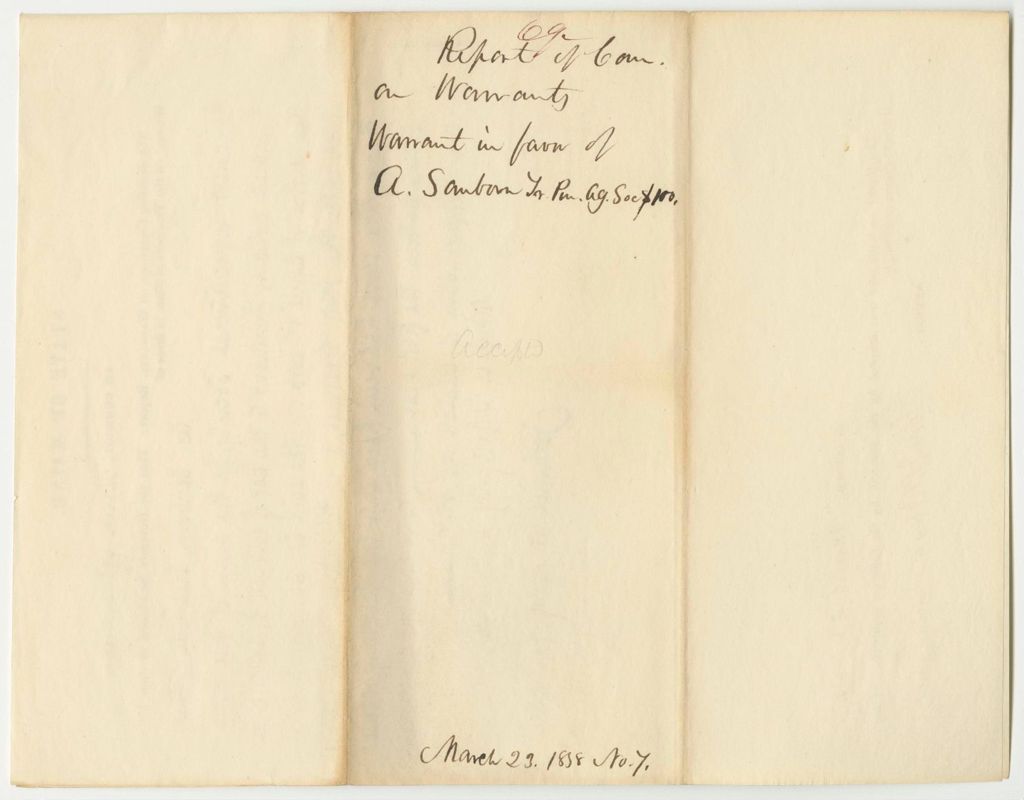 69
Report of Com.
on Warrants
Warrant in favor of
A. Sanborn Tr. Pen. Ag. Soc $100.
Accepted
March 23. 1838 No. 7.